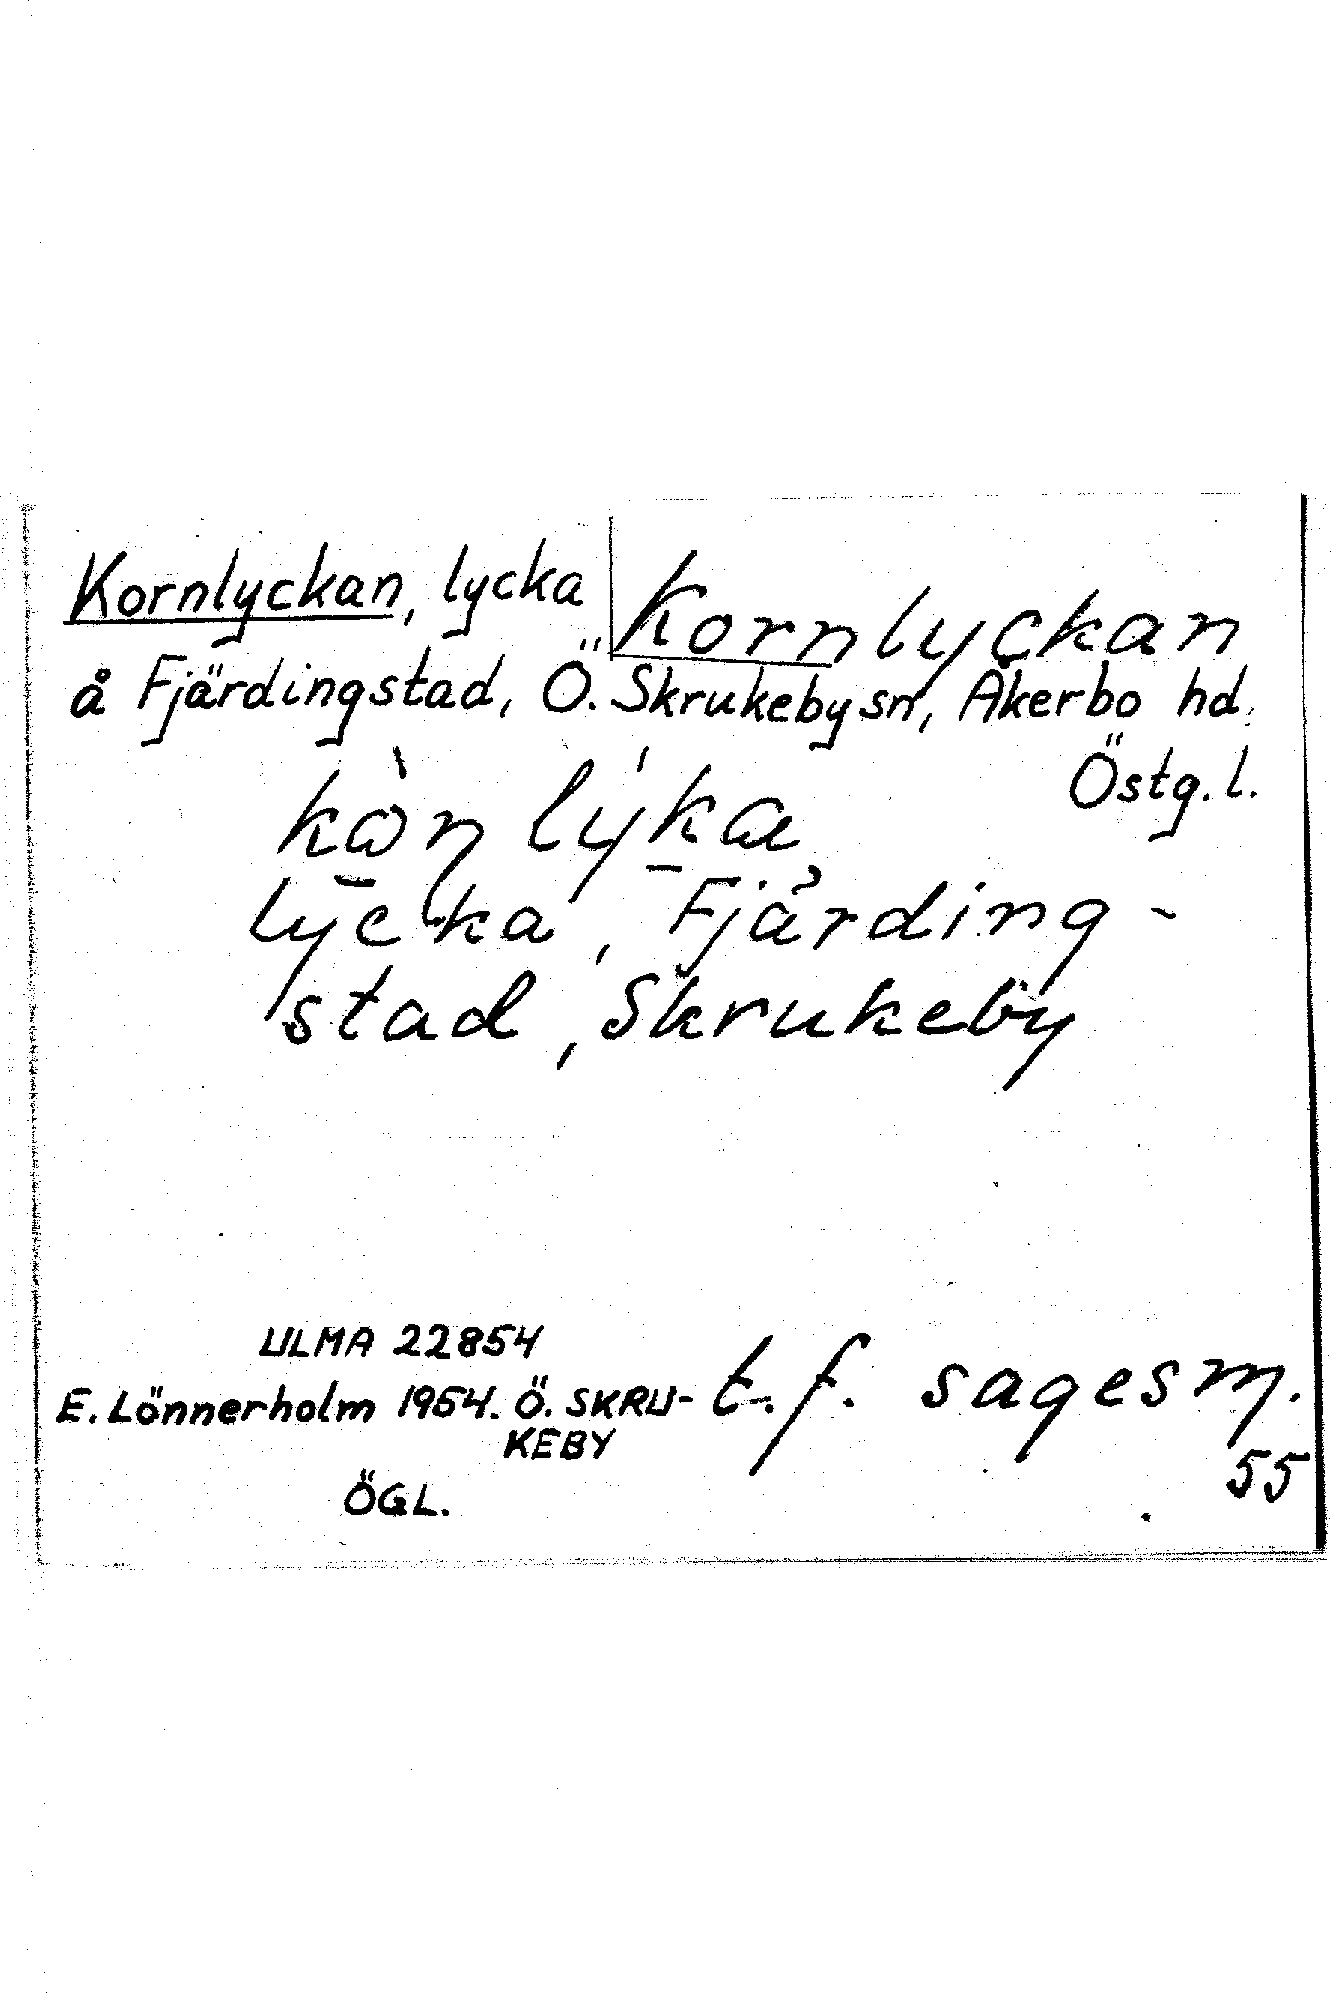 Kornlyckan, lycka
Kornlyckan
å Fjärdingstad, Ö. Skrukeby sn, Åkerbo hd.
Östg. l.
lycka, Fjärding-
stad, Skrukeby
ULMA 22854
E. Lönnerholm 1954. Ö. SKRU-
KEBY
ÖGL.
t.f. sagesm.
55